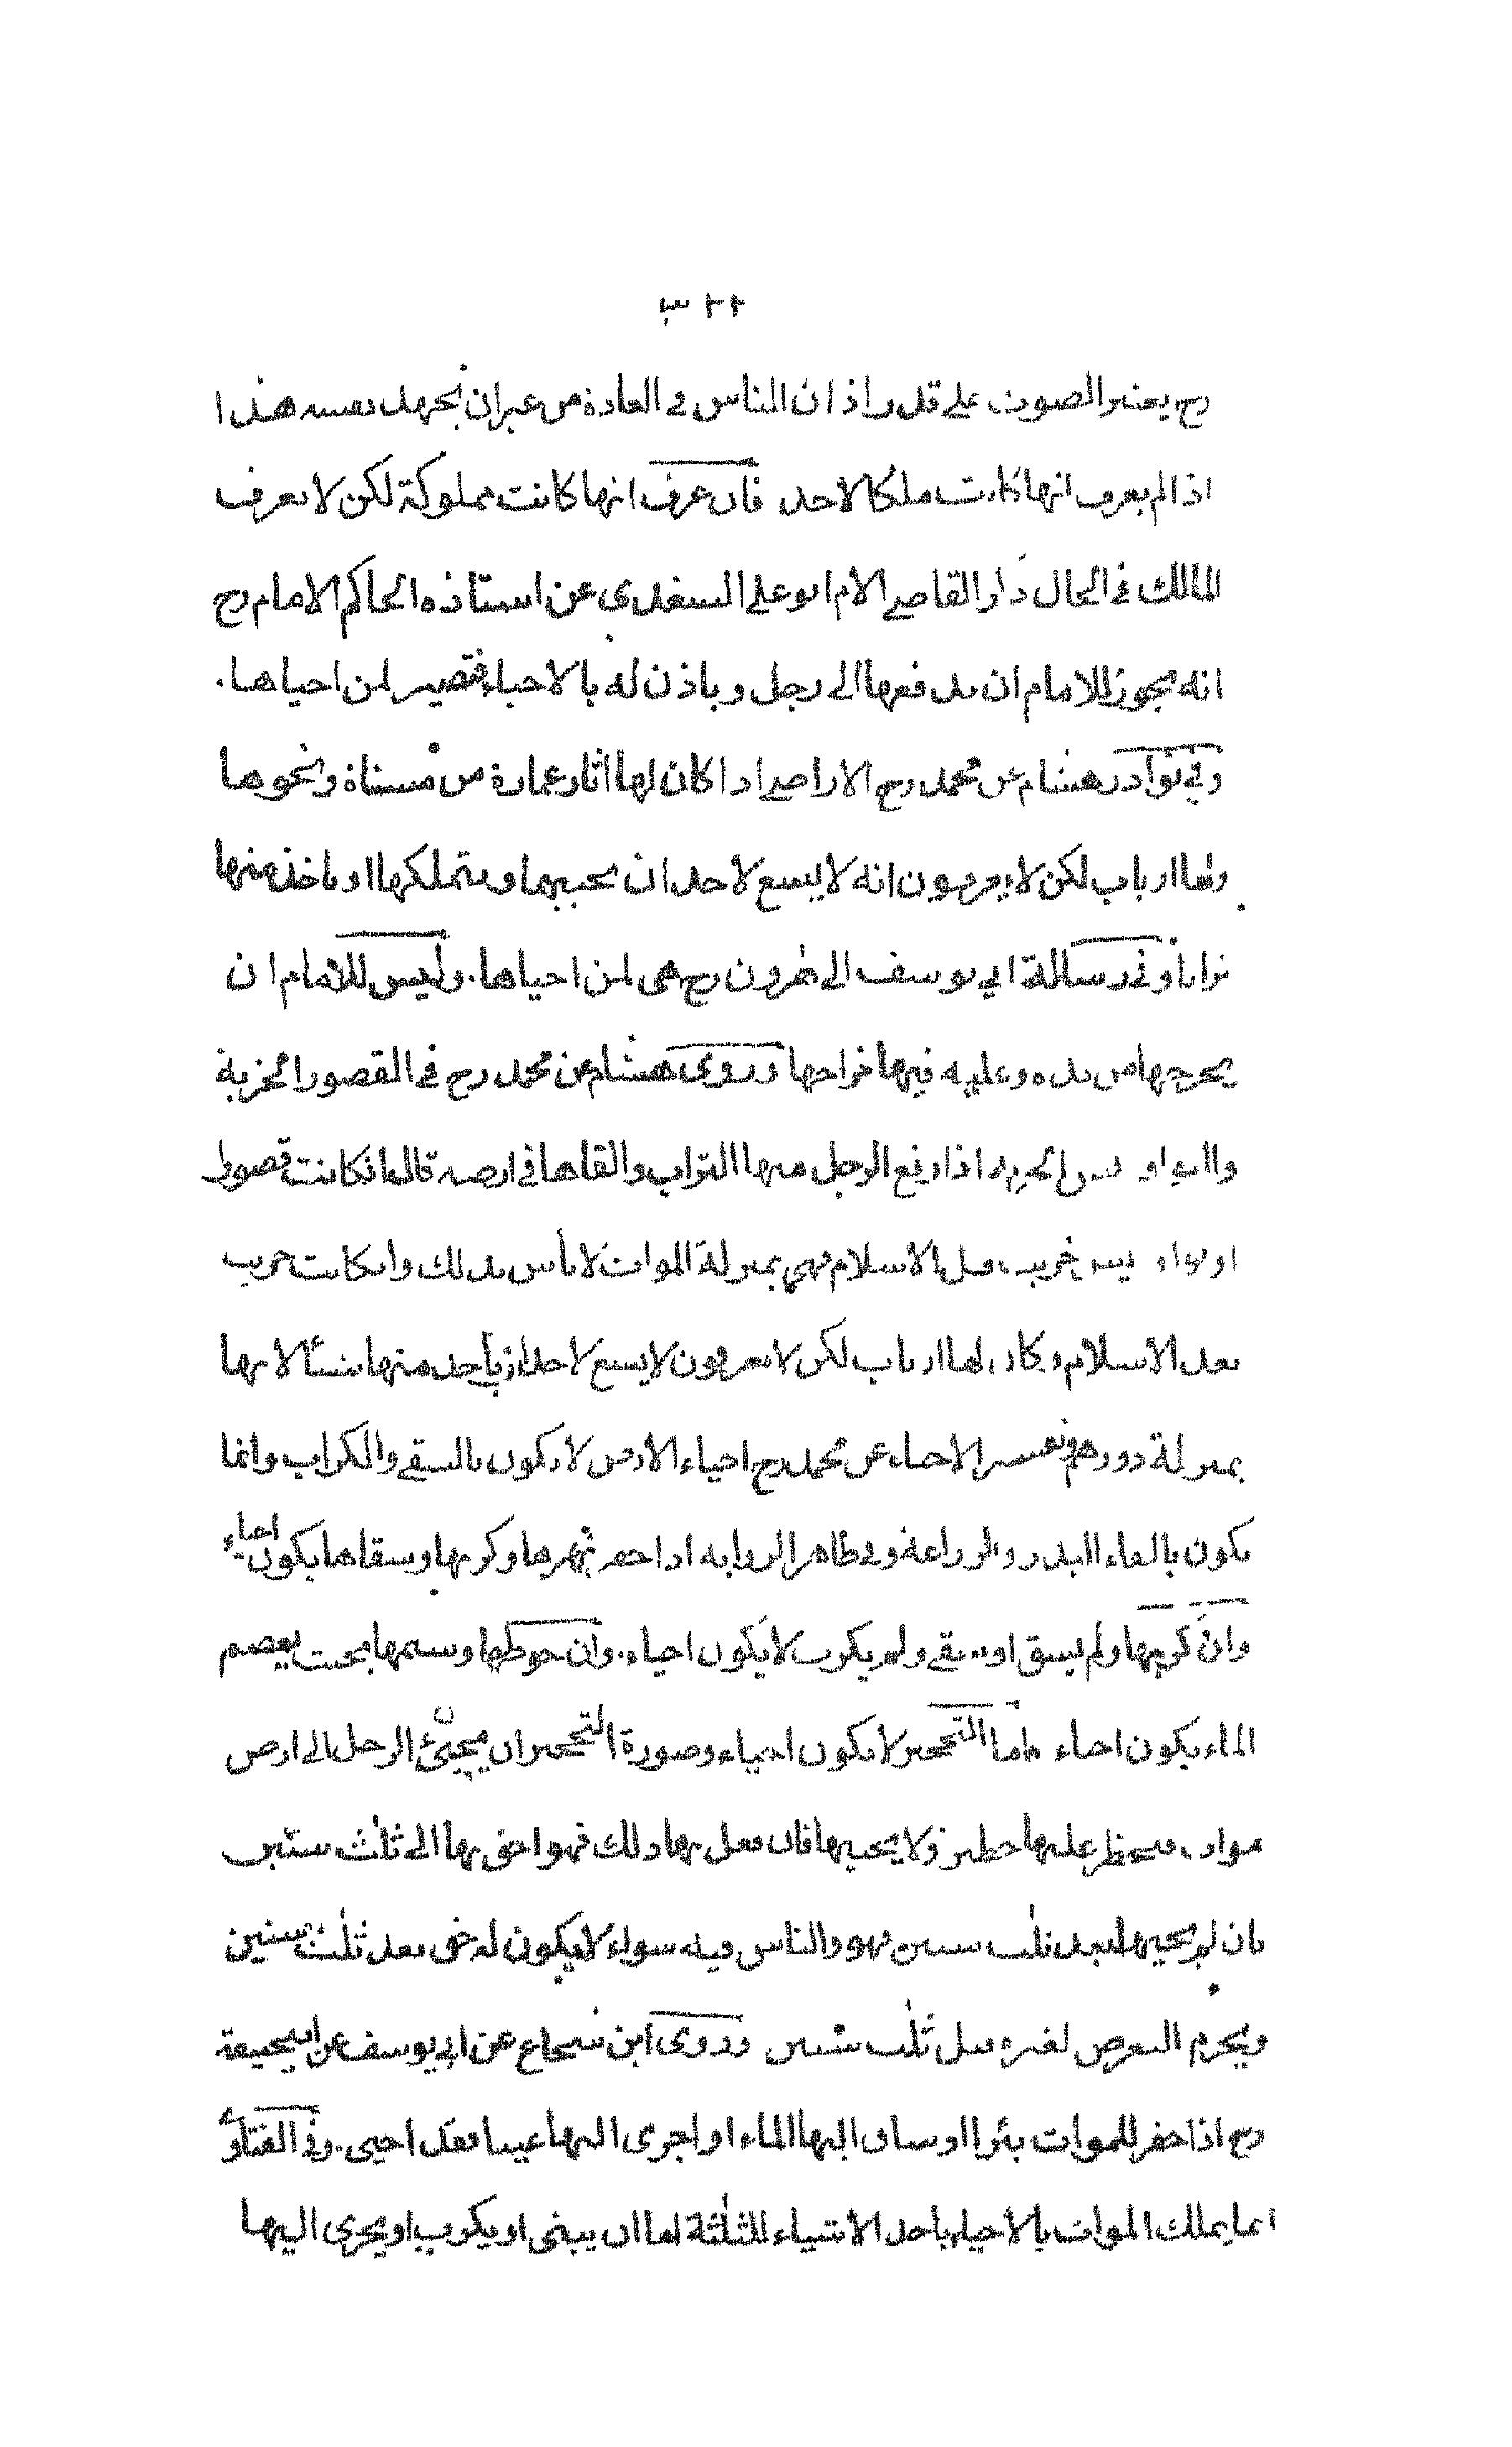 رح يعتبر الصوت على قدر اذان الناس في العادة من غير ان يجهد نفسه هذا
اذا لم يعرف انها كانت ملكا لاحد فان عرف انها كانت مملوكة لكن لا يعرف
المالك في الحال ذكر القاضي الامام ابو علي السغدى عن استاذه الحاكم الامام رح
انه يجوز للامام ان يدفعها الى رجل وياذن له بالاحياء فتصير لمن احياها.
وفي نوادر هشام عن محمد رح الاراضي اذا كان لها اثار عمارة من مسناة ونحوها
ولها ارباب لكن لا يعرفون انه لا يسع لاحد ان يحييها ويتملكها او ياخذ منها
ترابا وفي رسالة ابي يوسف الى هرون رح هي لمن احياها. وليس للامام ان
يخرجها من يده وعليه فيها خراجها وروى هشام عن محمد رح في القصور الخربة
اذا رفع الرجل منها التراب والقاها في ارضه قال ان كانت قصور
خربت قبل الاسلام فهي بمنزلة الموات لا بأس بذلك وان كانت خربت
بعد الاسلام وكان لها ارباب لكن لا يعرفون لا يسع لاحد ان يأخذ منها شيئا لانها
بمنزلة دورهم وتفسير الاحياء عن محمد رح احياء الارض لا يكون بالسقي والكراب وانما
يكون بالقاء البذر والزراعة وفي ظاهر الرواية اذا حفر نهرها وكربها وسقاها يكون احياء
وان كربها ولم يسق او سقي ولم يكرب لا يكون احياء. وان حوطها وسنمها بحيث يعصم
الماء يكون احياء فاما التحجير لا يكون احياء وصورة التحجير ان يجيئ الرجل الى ارض
موات فيحظر عليها حظيرة ولا يحييها فان فعل بها ذلك فهو احق بها الى ثلث سنين
فان لم يحييها بعد ثلث سنين فهو والناس فيه سواء لا يكون له حق بعد ثلث سنين
ويحرم التعرض لغيره قبل ثلث سنين وروى ابن شجاع عن ابي يوسف عن ابيحنيفة
رح اذا حفر للموات بئرا او ساق اليها الماء او اجرى اليها عينا فقد احيى. وفي الفتاوى
انما يملك الموات بالاحياء باحد الاشياء الثلثة اما ان يبنى او يكرب او يجرى اليها